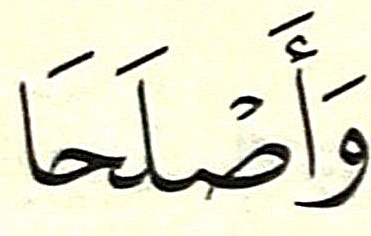 وَأَصْلَحَا